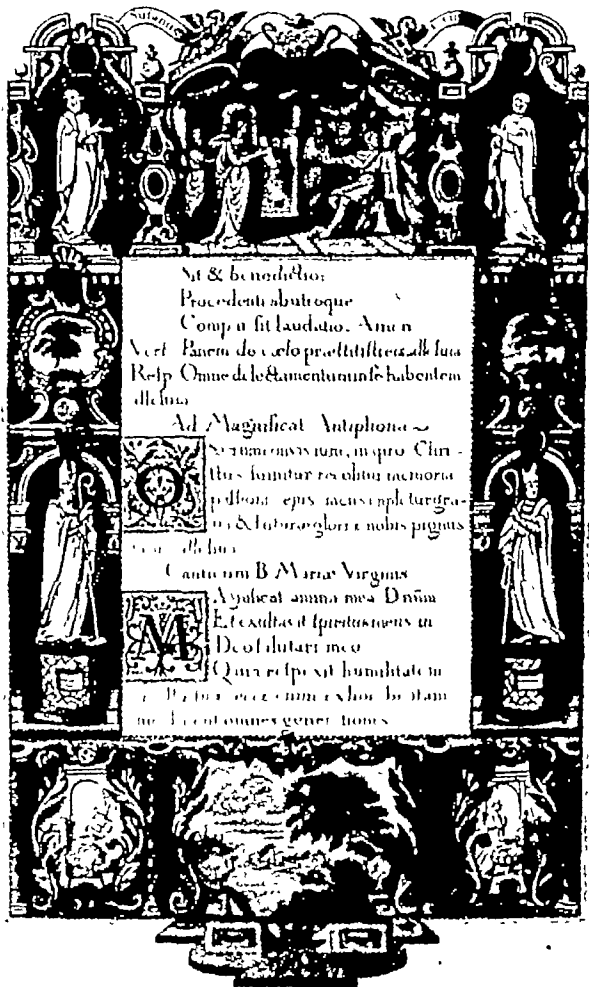 Sit & benedictio:
Procedenti ab utroque
Compar sit laudatio. Amen
Vers. Panem de cœlo præstitisti eis. alleluia
Resp. Omne delectamentum in se habentem
alleluia
Ad Magnificat Antiphona
O Sacrum convivium, in quo Chri-
stus sumitur recolitur memoria
passionis ejus mens impletur gra-
tia & futuræ gloriæ nobis pignus
datur alleluia
Canticum B. Mariæ Virginis
MAgnificat anima mea Dnũm
Et exultavit spiritus meus in
Deo salutari meo
Quia respexit humilitatem
ancillæ suæ ecce enim ex hoc beatam
me dicent omnes generationes